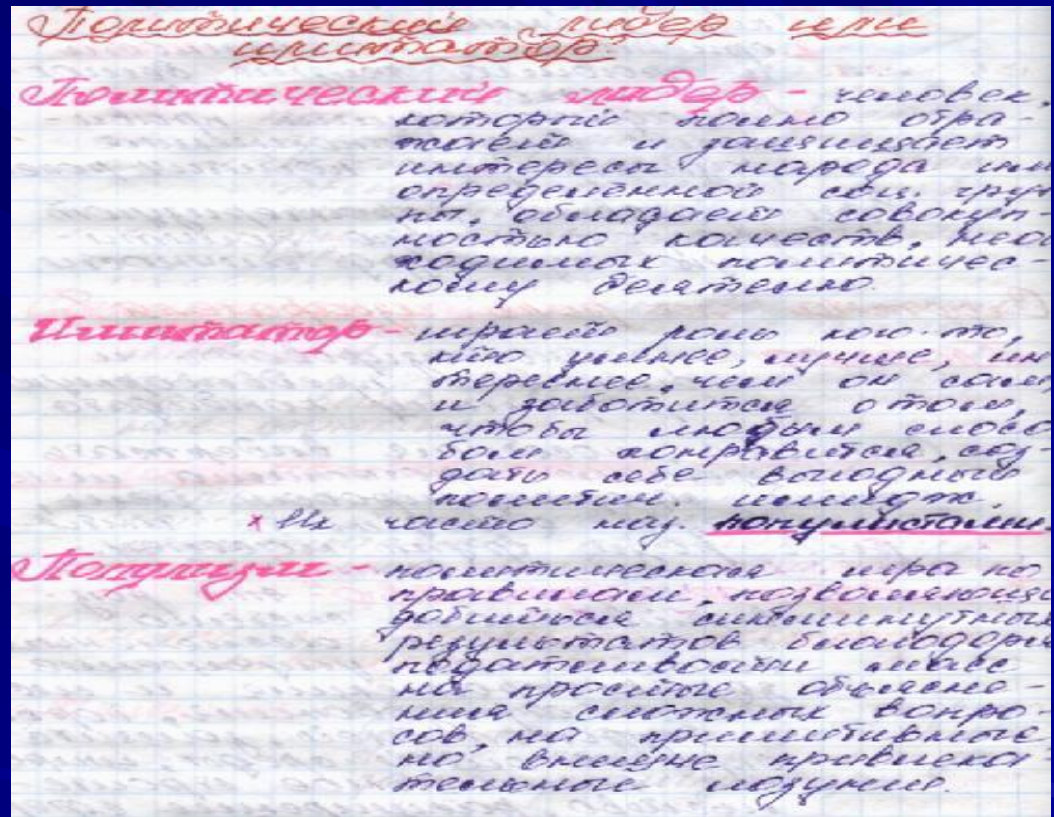 Политический лидер или
имитатор?
Политический лидер - человек,
который полно отра-
жает и защищает
интересы народа или
определённой соц. груп
пы, обладает совокуп-
ностью качеств, необ
ходимых политичес-
кому деятелю.
Имитатор - играет роль кого-то,
кто умнее, лучше, ин
тереснее, чем он сам,
и заботится о том,
чтобы любым спосо
бом понравиться, соз-
дать себе выгодный
политич. имидж.
х Их часто наз. популистами.
Популизм - политическая игра по
правилам, позволяющая
добиться сиюминутных
результатов благодаря
податливости масс
на простые объясне-
ния сложных вопро-
сов, на примитивные,
но внешне привлека-
тельные лозунги.